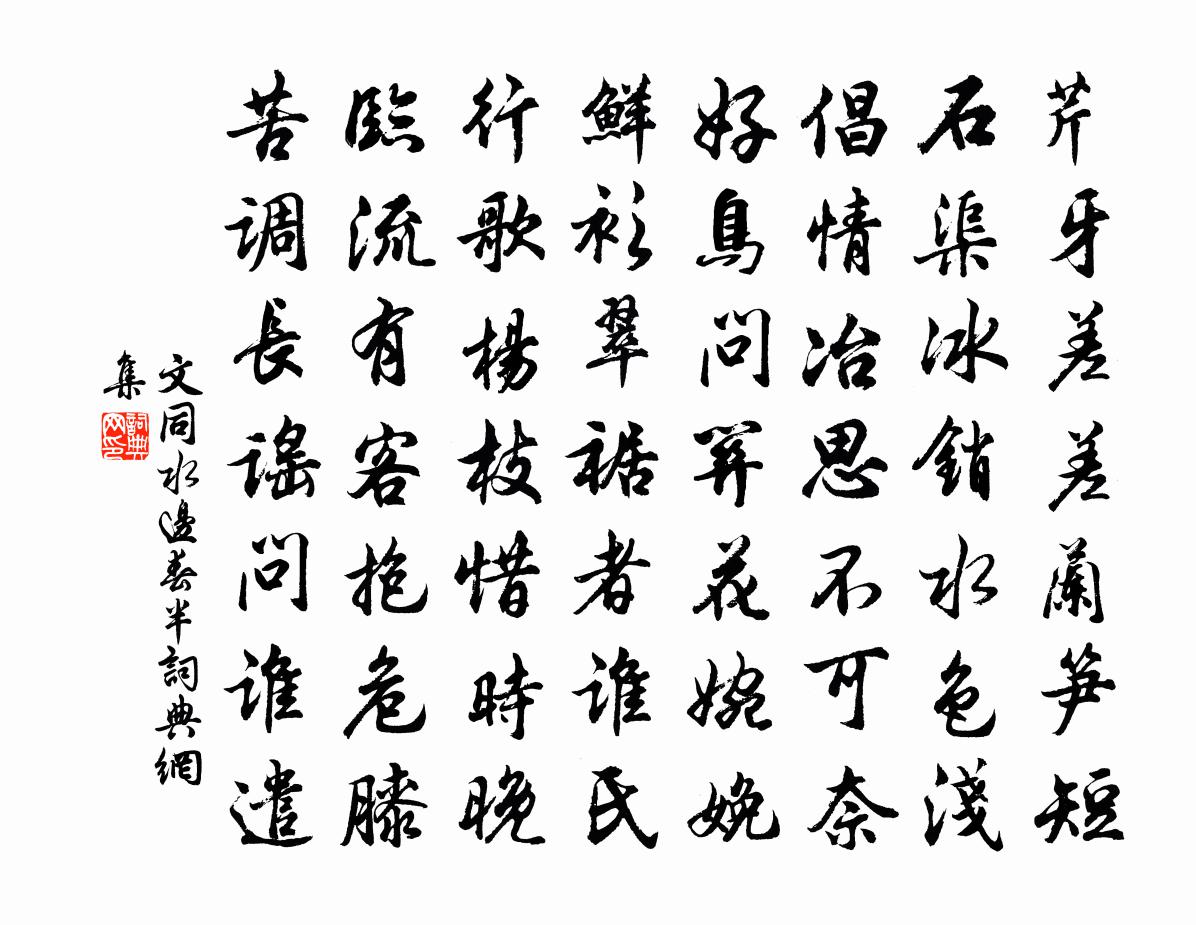 芹牙差差蘭笋短
石渠冰銷水色淺
倡情冶思不可奈
好鳥問關花婉娩
鮮衫翠裾者誰氏
行歌楊枝惜時晚
臨流有客抱危膝
苦調長謠問誰遣
文同水邊春半詞典網
集
詞典
网印